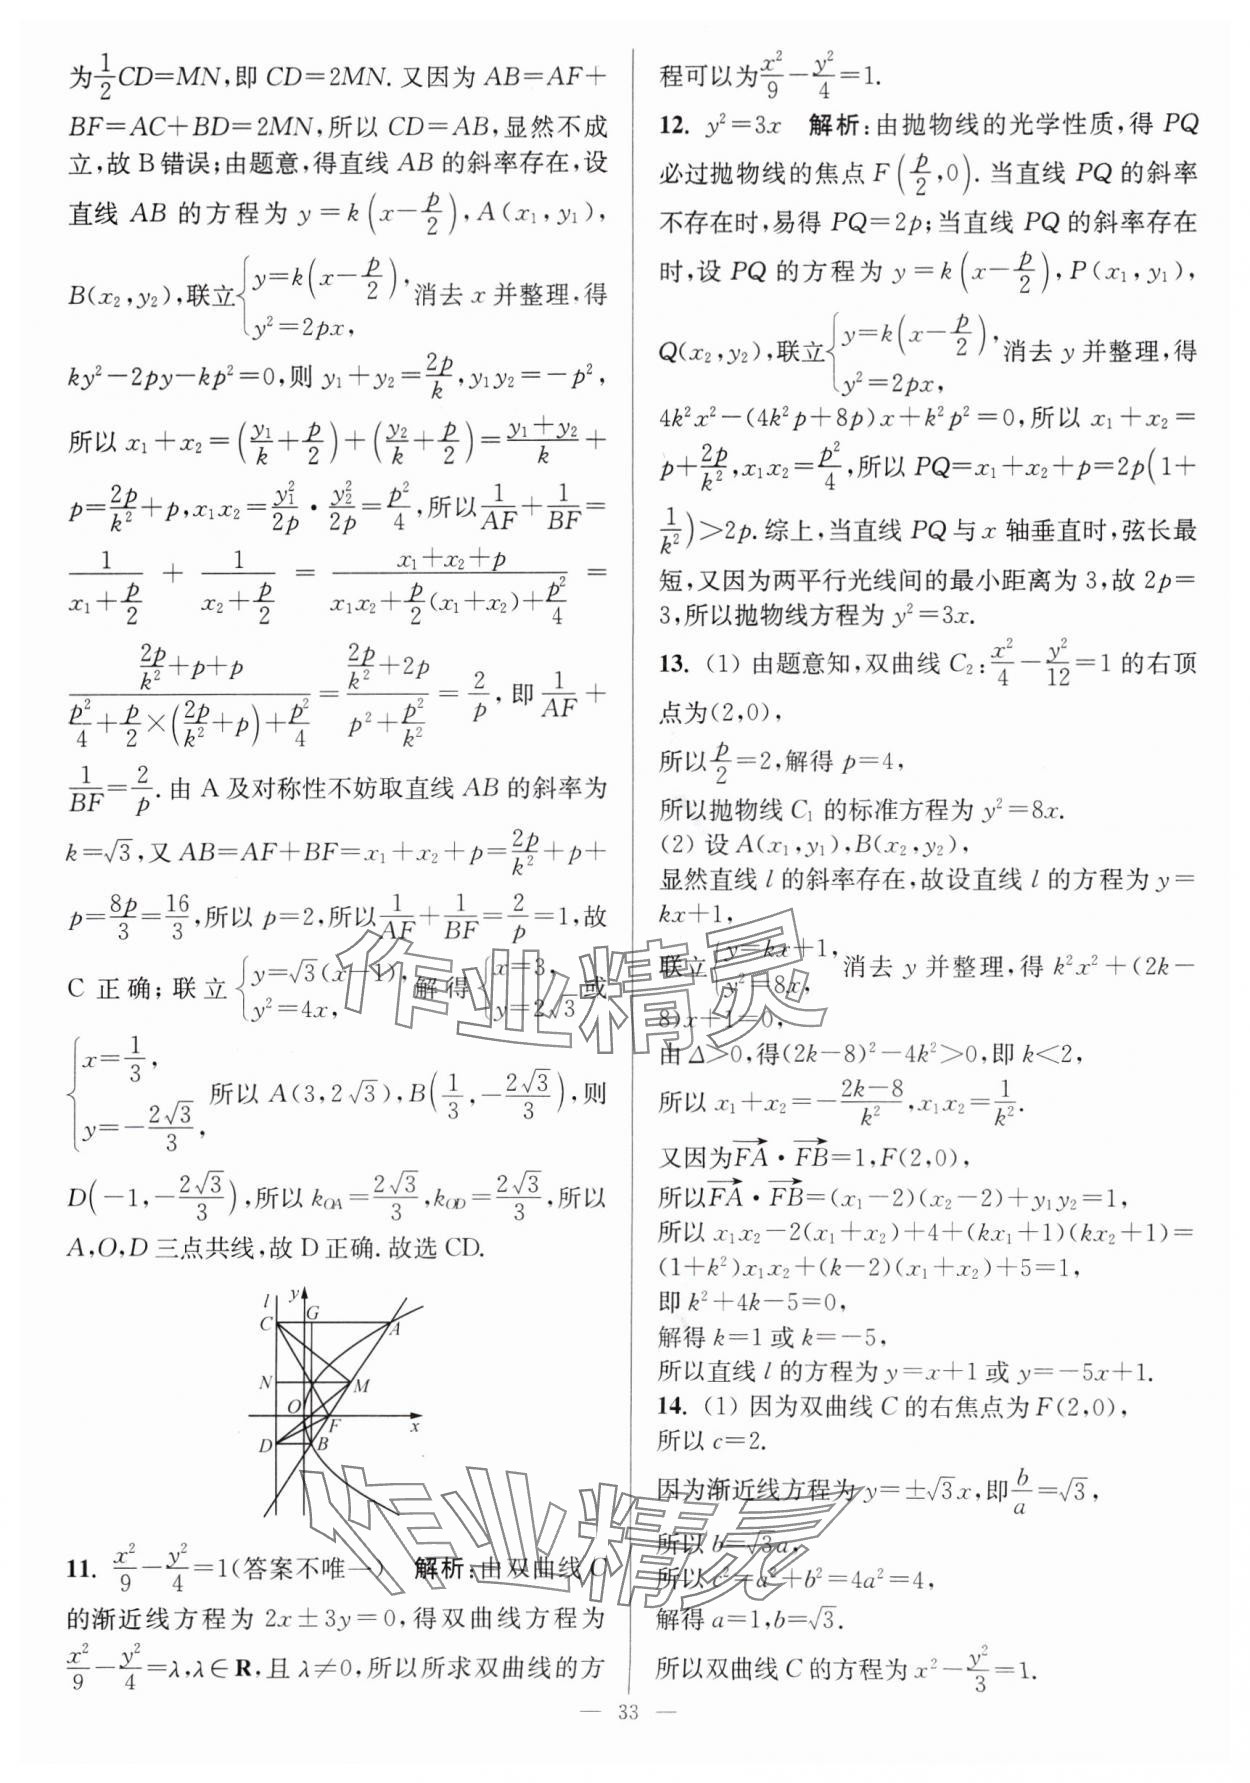 为1/2CD=MN,即 CD=2MN. 又因为 AB=AF+
BF=AC+BD=2MN,所以 CD=AB,显然不成
立,故 B 错误;由题意,得直线 AB 的斜率存在,设
直线 AB 的方程为 y=k(x-p/2),A(x₁,y₁),
B(x₂,y₂),联立{y=k(x-p/2), y²=2px, 消去 x 并整理,得
ky²-2py-kp²=0,则 y₁+y₂=2p/k,y₁y₂=-p²,
所以 x₁+x₂=(y₁/k+p/2)+(y₂/k+p/2)=(y₁+y₂)/k+
p=2p/k²+p,x₁x₂=y₁²/2p·y₂²/2p=p²/4,所以1/AF+1/BF=
1/(x₁+p/2)+1/(x₂+p/2)=(x₁+x₂+p)/(x₁x₂+p/2(x₁+x₂)+p²/4)=
(2p/k²+p+p)/(p²/4+p/2×(2p/k²+p)+p²/4)=(2p/k²+2p)/(p²+p²/k²)=2/p,即1/AF+
1/BF=2/p.由 A 及对称性不妨取直线 AB 的斜率为
k=√3,又 AB=AF+BF=x₁+x₂+p=2p/k²+p+
p=8p/3=16/3,所以 p=2,所以1/AF+1/BF=2/p=1,故
C 正确;联立{y=√3(x-1), y²=4x, 解得{x=3, y=2√3 或
{x=1/3, y=-2√3/3, 所以 A(3,2√3),B(1/3,-2√3/3),则
D(-1,-2√3/3),所以 k_OA=2√3/3,k_OD=2√3/3,所以
A,O,D 三点共线,故 D 正确.故选 CD.
l y G
C A
N M
O F x
D B
11. x²/9-y²/4=1(答案不唯一) 解析:由双曲线 C
的渐近线方程为 2x±3y=0,得双曲线方程为
x²/9-y²/4=λ,λ∈R,且 λ≠0,所以所求双曲线的方
程可以为x²/9-y²/4=1.
12. y²=3x 解析:由抛物线的光学性质,得 PQ
必过抛物线的焦点 F(p/2,0). 当直线 PQ 的斜率
不存在时,易得 PQ=2p;当直线 PQ 的斜率存在
时,设 PQ 的方程为 y=k(x-p/2),P(x₁,y₁),
Q(x₂,y₂),联立{y=k(x-p/2), y²=2px, 消去 y 并整理,得
4k²x²-(4k²p+8p)x+k²p²=0,所以 x₁+x₂=
p+2p/k²,x₁x₂=p²/4,所以 PQ=x₁+x₂+p=2p(1+
1/k²)>2p.综上,当直线 PQ 与 x 轴垂直时,弦长最
短,又因为两平行光线间的最小距离为 3,故 2p=
3,所以抛物线方程为 y²=3x.
13. (1) 由题意知,双曲线 C₂:x²/4-y²/12=1 的右顶
点为(2,0),
所以p/2=2,解得 p=4,
所以抛物线 C₁ 的标准方程为 y²=8x.
(2) 设 A(x₁,y₁),B(x₂,y₂),
显然直线 l 的斜率存在,故设直线 l 的方程为 y=
kx+1,
联立{y=kx+1, y²=8x, 消去 y 并整理,得 k²x²+(2k-
8)x+1=0,
由 Δ>0,得(2k-8)²-4k²>0,即 k<2,
所以 x₁+x₂=-(2k-8)/k²,x₁x₂=1/k².
又因为FA→·FB→=1,F(2,0),
所以FA→·FB→=(x₁-2)(x₂-2)+y₁y₂=1,
所以 x₁x₂-2(x₁+x₂)+4+(kx₁+1)(kx₂+1)=
(1+k²)x₁x₂+(k-2)(x₁+x₂)+5=1,
即 k²+4k-5=0,
解得 k=1 或 k=-5,
所以直线 l 的方程为 y=x+1 或 y=-5x+1.
14. (1) 因为双曲线 C 的右焦点为 F(2,0),
所以 c=2.
因为渐近线方程为 y=±√3x,即b/a=√3,
所以 b=√3a,
所以 c²=a²+b²=4a²=4,
解得 a=1,b=√3.
所以双曲线 C 的方程为 x²-y²/3=1.
— 33 —
作业精灵
作业精灵